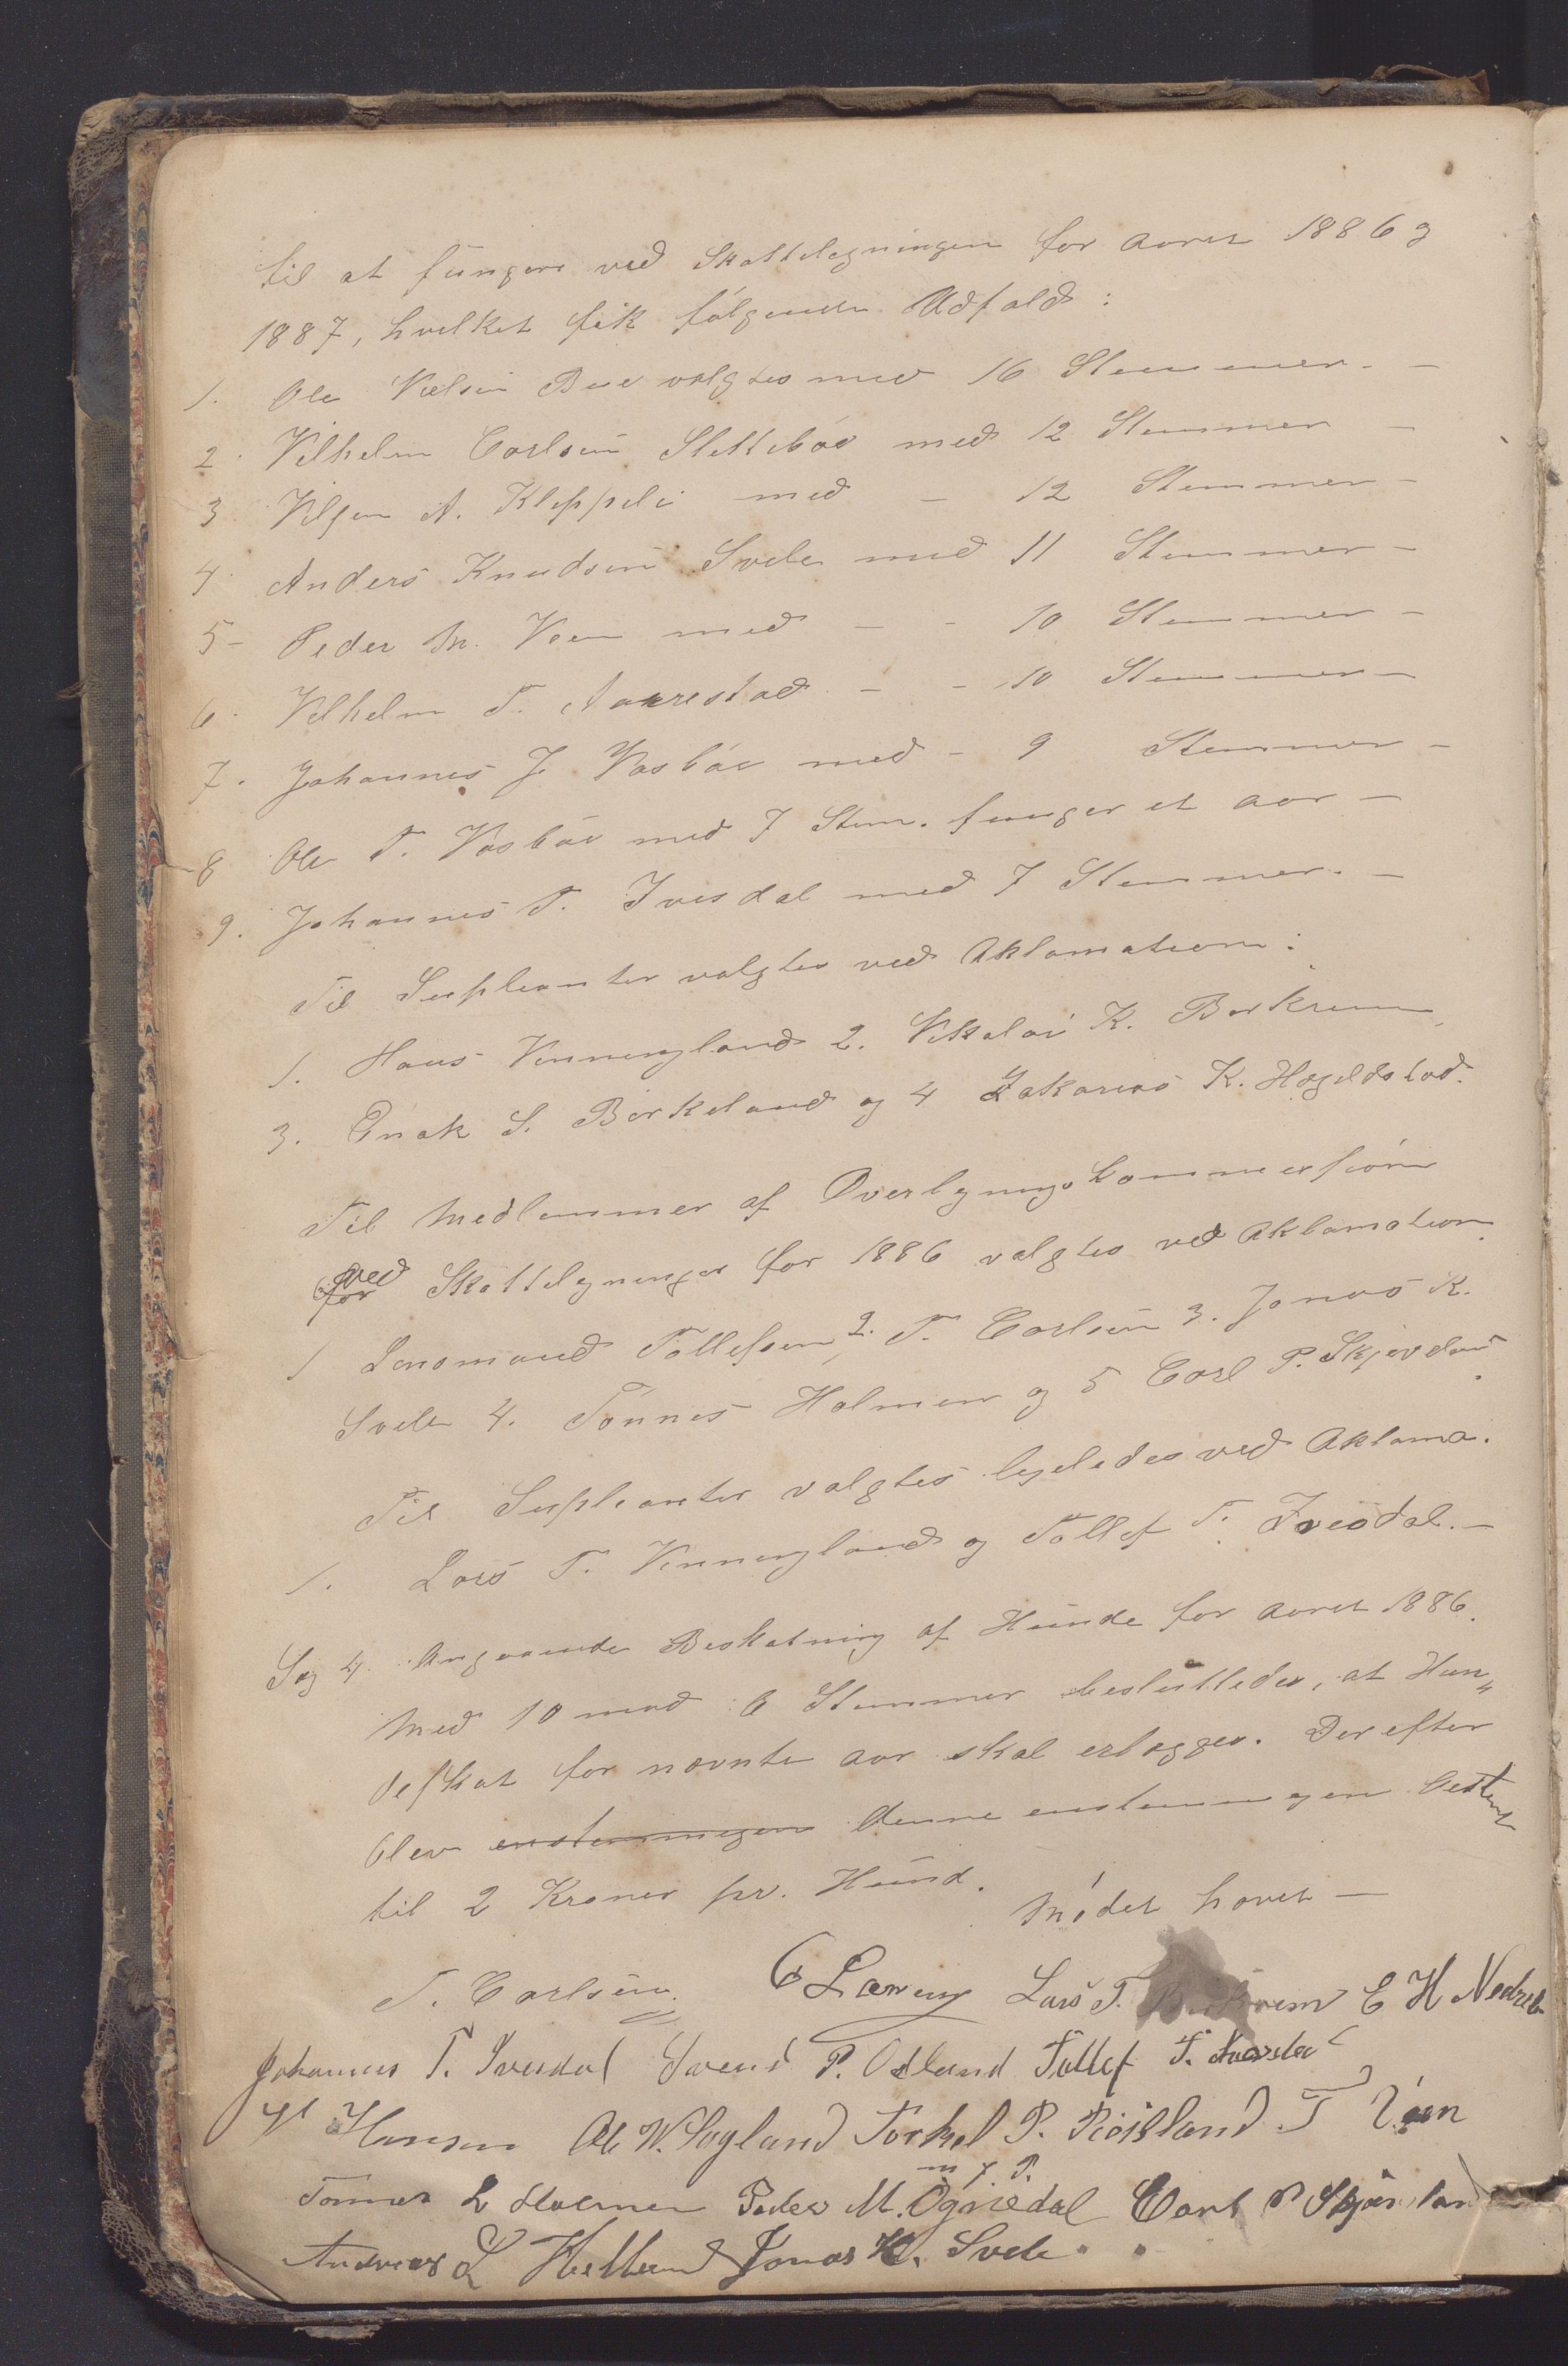 til at fungere ved Skattelegningen for Aaret 1886 og
1887, hvilket fik følgende Udfald:
1. Ole Nielsen Bue valgtes med 16 Stemmer. -
2. Vilhelm Carlsen Slettebøe med 12 Stemmer -
3 A. Kleppeli med - 12 Stemmer -
4 Anders Knudsen Svele med 11 Stemmer -
5 - Peder M. Veen med - - 10 Stemmer -
6. Vilhelm T. Aarrestad - - 10 Stemmer -
7. Johannes J. Vasbøe med - 9 Stemmer -
8 Ole T. Vasbøe med 7 Stem. funger et Aar -
9. Johannes T. Ivesdal med 7 Stemmer. -
Til Supleanter valgtes ved Aklamation:
1. Hans Vinningland 2. Nikolai K. Birkrem
3. Enok S. Birkeland og 4 Zakarias K. Hægelstad.
Til Medlemmer af Overlignings Kommissionen
for ved Skattelegningen for 1886 valgtes ved Aklamation
1 Lensmand Tollefsen, 2. T. Carlsen 3. Jonas K.
Svele 4. Tønnes Holmen og 5 Carl P. Skjevland.
Til Supleanter valgtes ligeledes ved Aklama.
1. Lars T. Vinningland og Tollef T. Ivesdal. -
Sag 4. Angaaende Beskatning af Hunde for Aaret 1886.
Med 10 mod 6 Stemmer besluttedes, at Hun„
deskat for nævnte Aar skal erlægges. Derefter
blev enstemmigen denne enstemmigen bestemt
til 2 Kroner pr. Hund.
Mødet hævet -
T. Carlsen. Lars T. Birkrem E H Nedreb
Johannes T. Ivesdal Svend P. Odland Tollef T. Aarstad
Hansen Ole W. Sagland Torkel P. Røisland T Veen
m f P.
Tønnes L Holmen Peder M. Ognedal Carl P Skjævland
Andreas L Helland Jonas K. Svele.